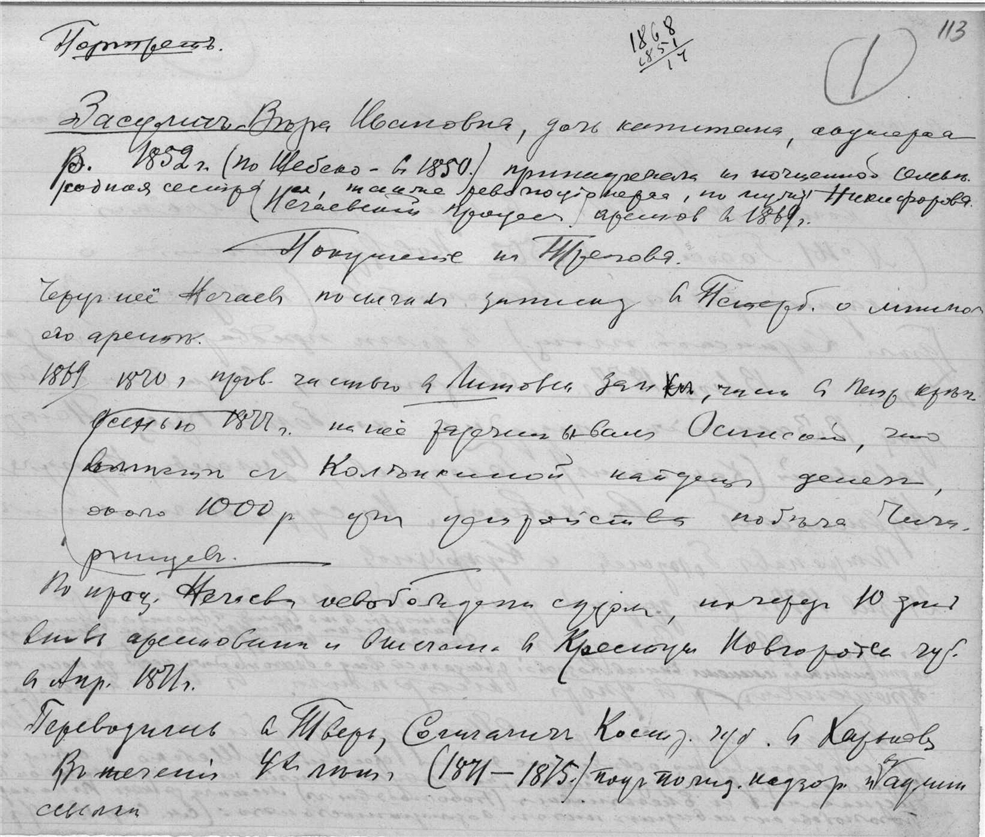 Портретъ.
1868
1851
17
1
113
Засуличъ Вѣра Ивановна, дочь капитана,
р. 1852 г. (по Шебеко - в 1850.) принадлежала къ почтенной семьѣ.
родная сестра ея, также революціонерка, по мужу Никифорова.
(Нечаевскій процесс арестов. в 1869 г.
Покушеніе на Трепова.
Через неё Нечаев послал записку в Петерб. о мнимом
его аресте.
1869 1870 г. пров. частью в Литовск. замкѣ, частью в Петр. крѣп.
осенью 1877 г. на неё разсчитывали Осинской, что
вместе с Коленкиной найдет денег,
около 1000 р для устройства побѣга Чиги-
ринцев.
По проц. Нечаева освобождена судом, но через 10 дней
вновь арестована и выслана в Крестцы Новгородск. губ.
в Апр. 1871 г.
Переводилась в Тверь, Солигалич Костр. губ. в Харьков
В теченіи 4х лет. (1871 - 1875.) под полиц. надзор. и в админ
ссылке